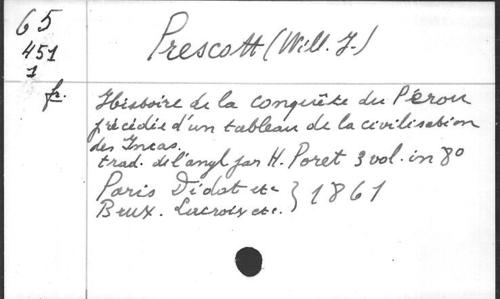 65
451
1
fr.
Prescott (Will. J.)
Histoire de la conquête du Pérou
précédée d'un tableau de la civilisation
des Incas.
trad. de l'angl par H. Poret 3 vol. in 8º
Paris Didot etc } 1861
Brux. Lacroix etc.